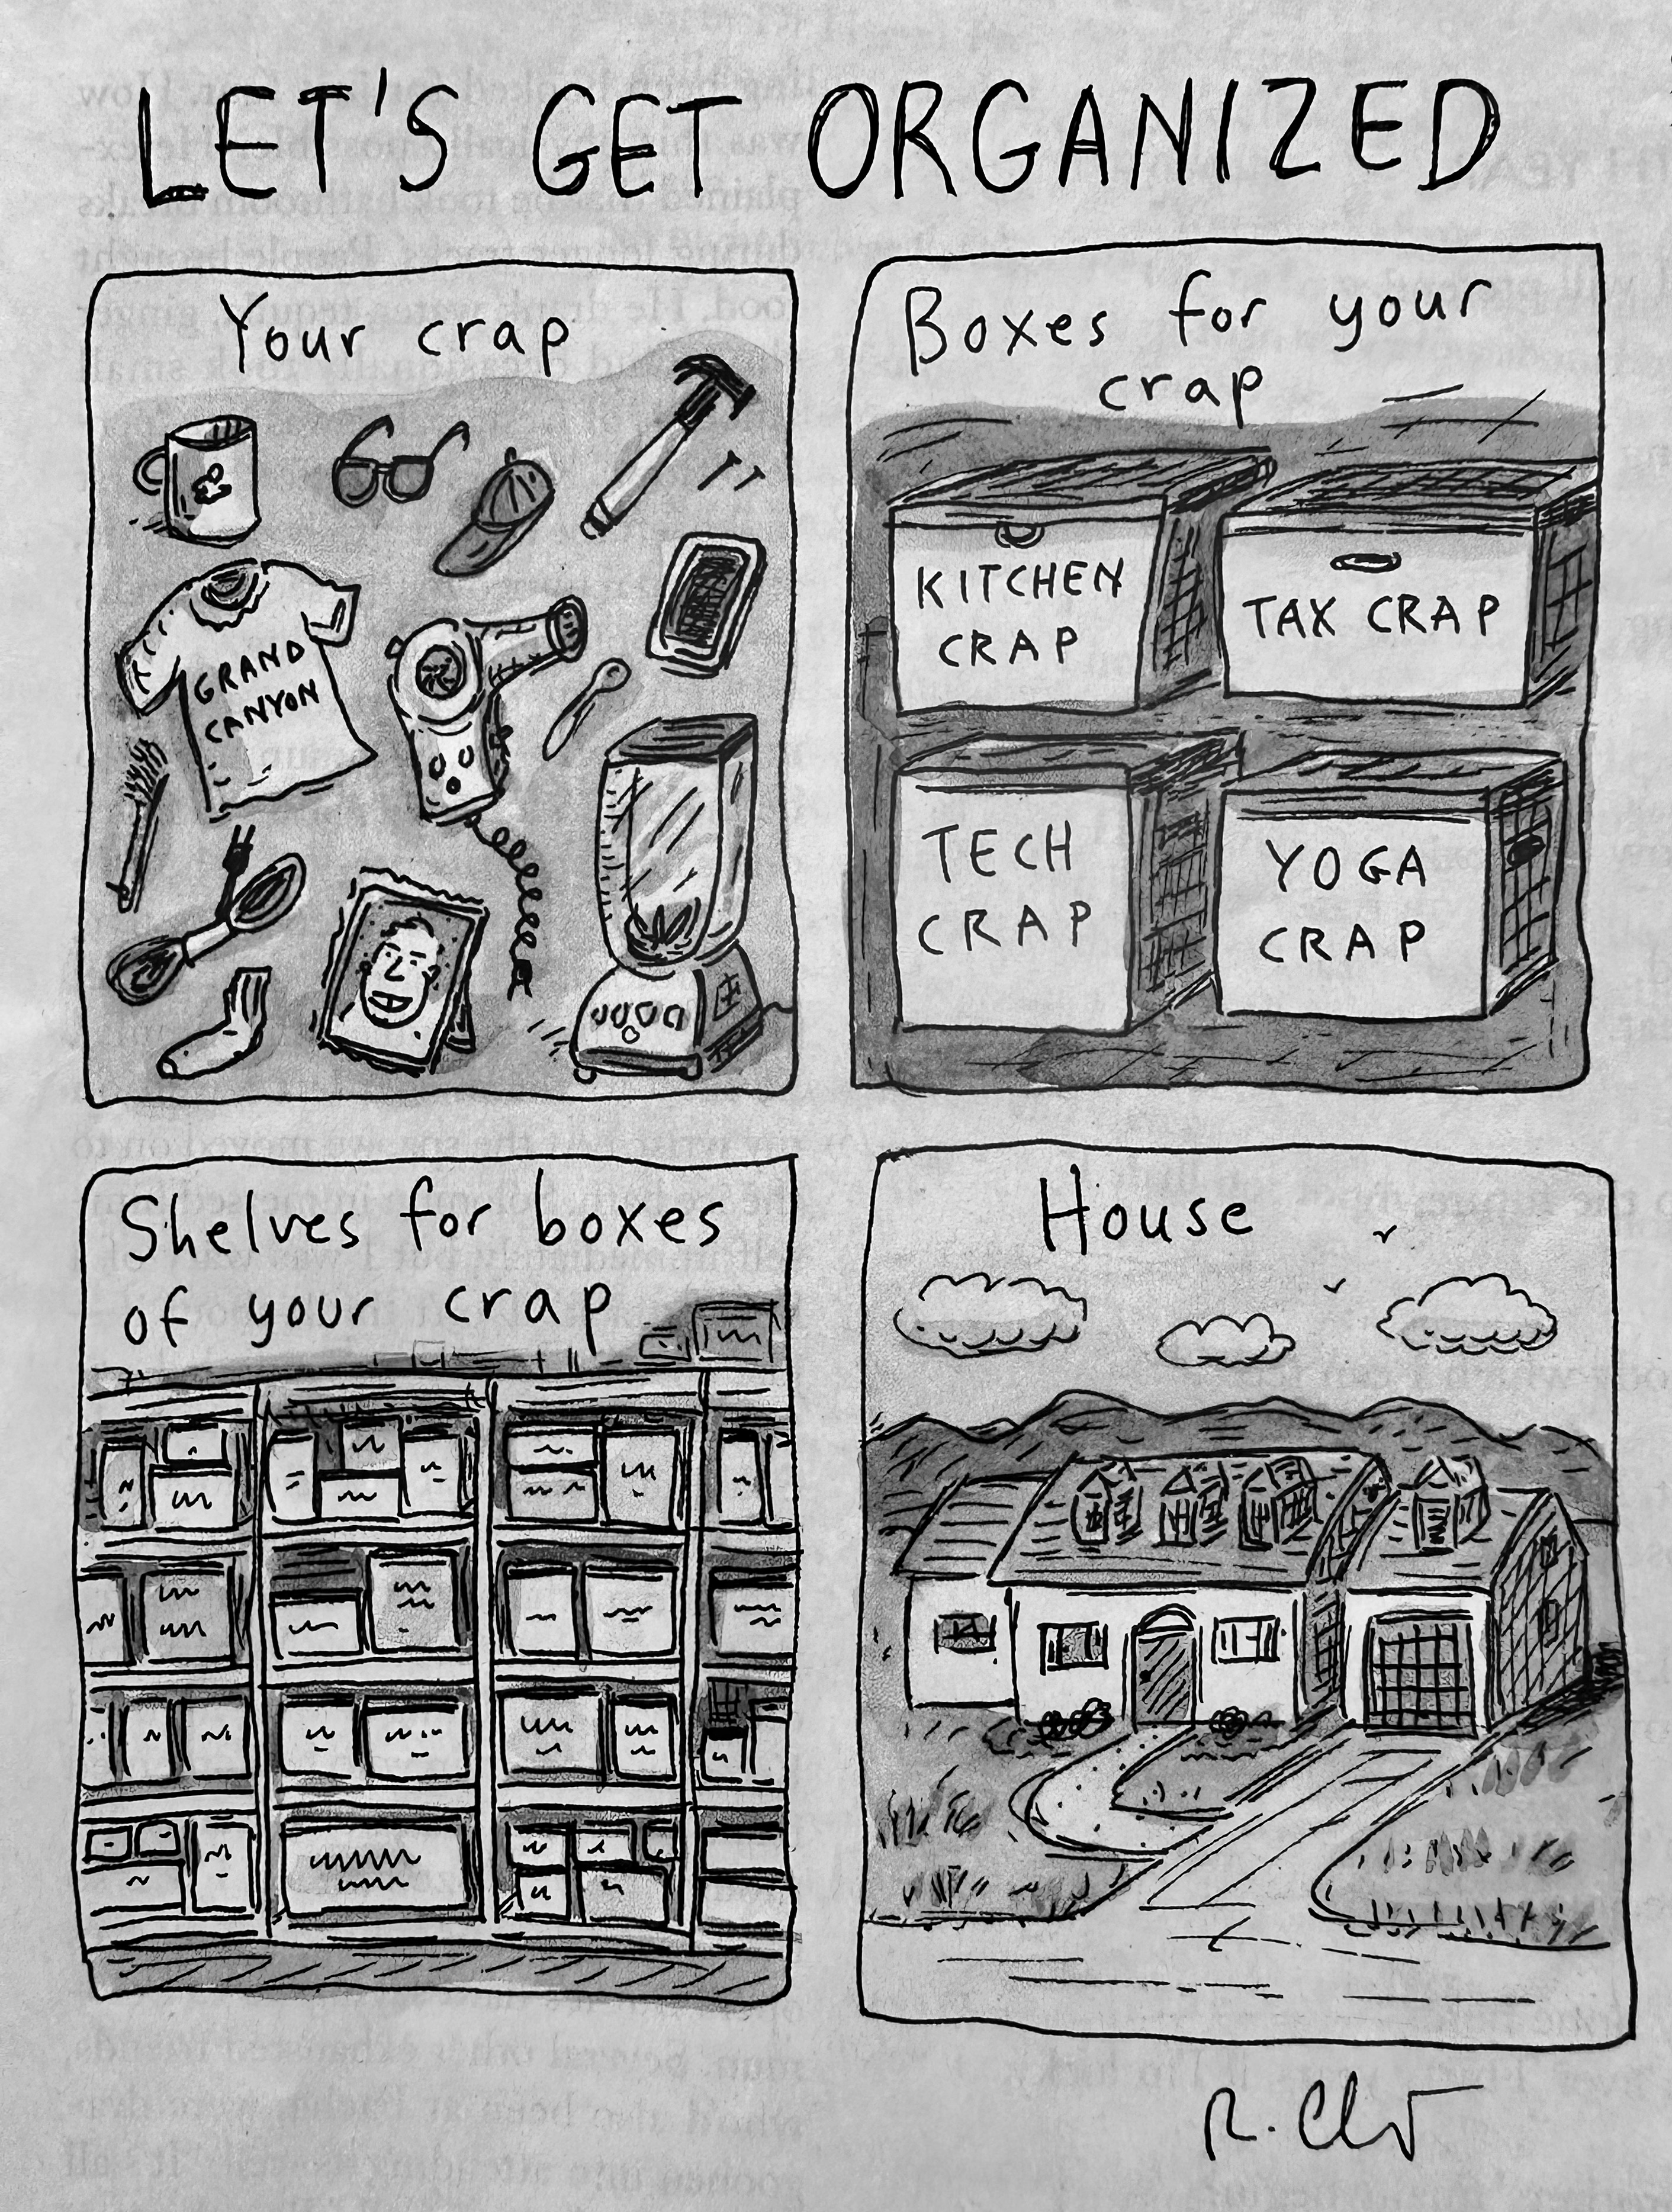 LET'S GET ORGANIZED
Your crap
GRAND
CANYON
Boxes for your
crap
KITCHEN
CRAP
TAX CRAP
TECH
CRAP
YOGA
CRAP
Shelves for boxes
of your crap
House